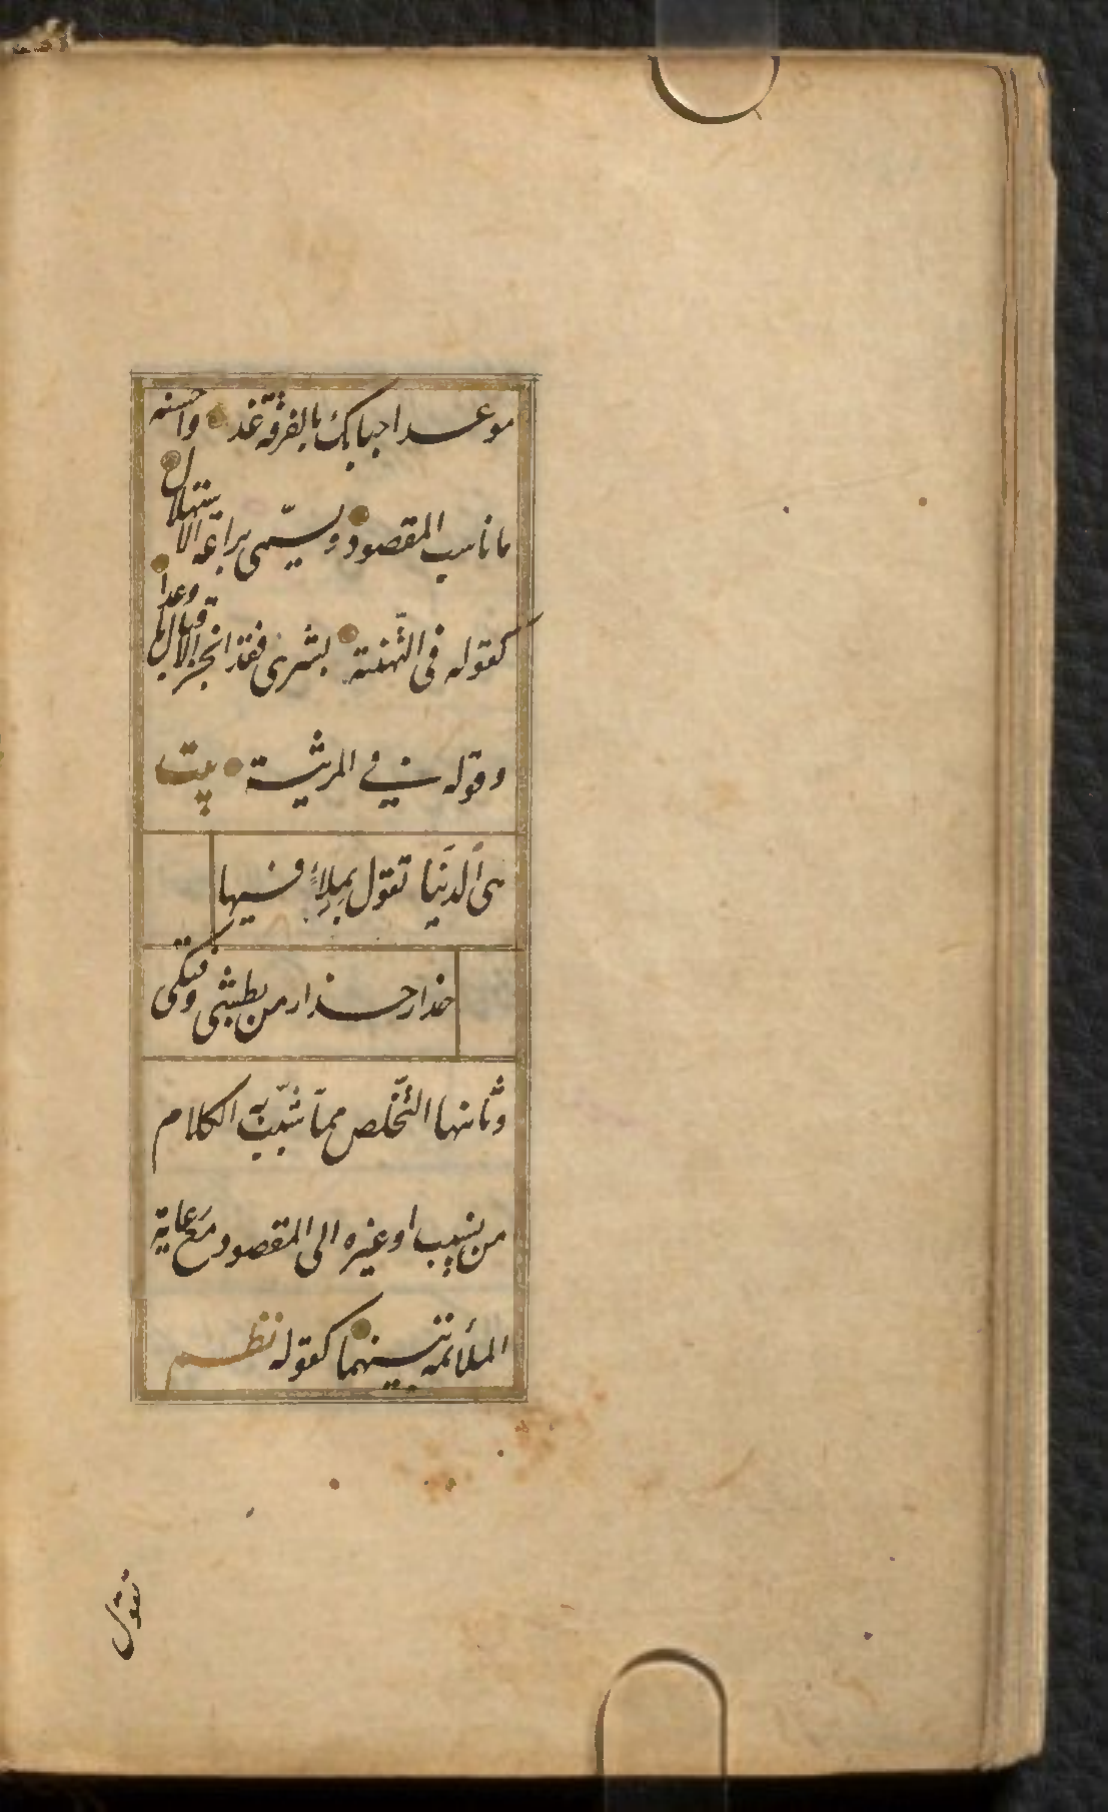 موعد احبابك بالفرقة غد واحسنه
ما ناسب المقصود ويسمّى براعة الاستهلال
كقوله فى التّهنئة بشرى فقد انجز الاقبال ما وعدا
وقوله في المرثية بيت
هى الدّنيا تقول بملأ فيها
حذار حذار من بطشى وفتكى
وثانيها التّخلّص ممّا شبّب به الكلام
من نسيب او غيره الى المقصود مع رعاية
الملائمة بينهما كقوله نظم
تقول